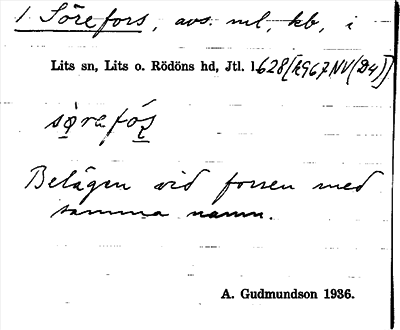 1. Sörefors, avs. ml, kb, i
Lits sn, Lits o. Rödöns hd, Jtl. 1628 [k967NV(D4)]
sørefós
Belägen vid forsen med
samma namn.
A. Gudmundson 1936.